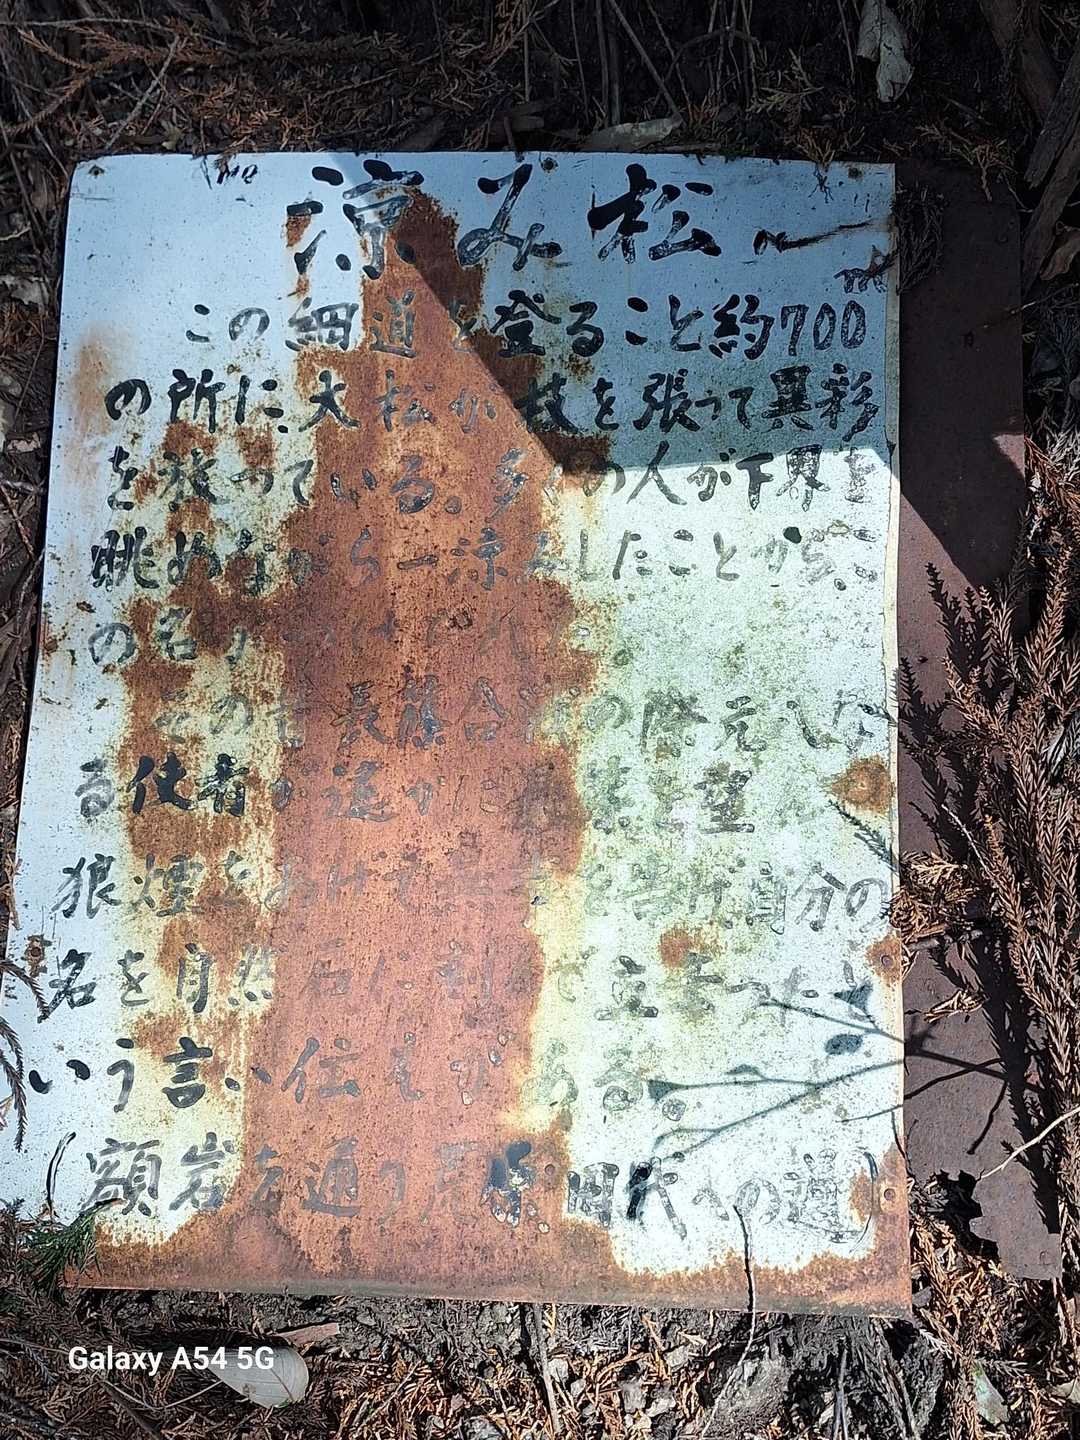 涼み松
この細道を登ること約700m
の所に大松が枝を張って異彩
を放っている。多くの人が下界を
眺めながら一涼みしたことから、こ
の名がつけられた。
その昔長篠合戦の際
使者が遙かに を望
狼煙をあげて無事を告げ自分の
名を自然石に刻んで立去ったと
いう言い伝えがある。
(額岩を通り荒原田代への道)
Galaxy A54 5G